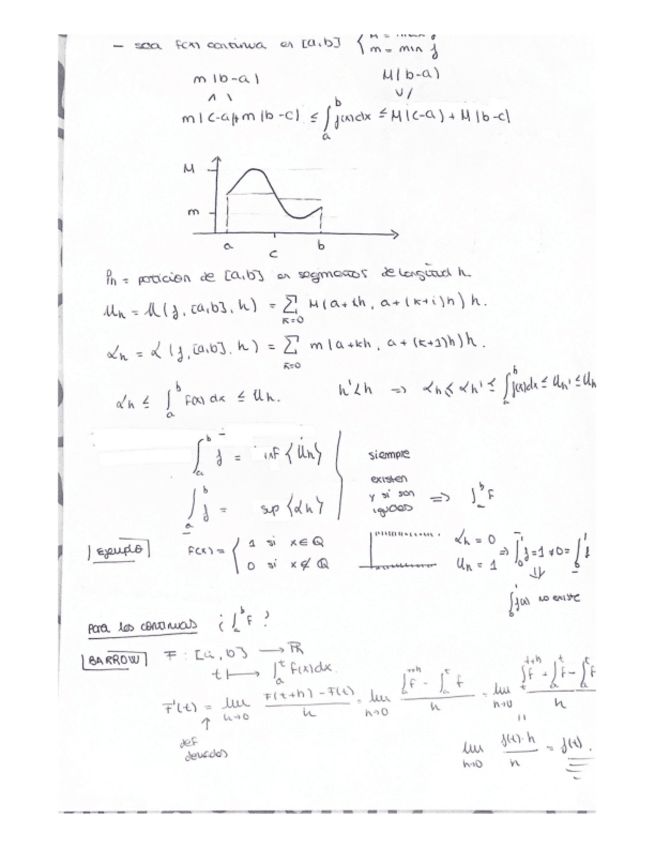 - sea F(x) continua en [a,b] { M = max f
m = min f
m(b-a) M(b-a)
m(c-a)+m(b-c) ≤ ∫ₐᵇ f(x)dx ≤ M(c-a) + M(b-c)
M
m
a c b
Pn = partición de [a,b] en segmentos de longitud h.
Un = U(f, [a,b], h) = Σ K=0 M(a+kh, a+(k+1)h) h.
αn = α(f, [a,b], h) = Σ K=0 m(a+kh, a+(k+1)h) h.
αh ≤ ∫ₐᵇ F(x) dx ≤ Uh. h' < h => αh ≤ αh' ≤ ∫ₐᵇ f(x)dx ≤ Uh' ≤ Uh
∫ₐᵇ f = inf {Un} siempre
existen
y si son
iguales => ∫ₐᵇ F
∫ₐᵇ f = sup {αn}
Ejemplo F(x) = { 1 si x∈Q
0 si x∉Q
αn = 0
Un = 1 => ∫₀¹ f = 1 ≠ 0 = ∫₀¹ f
⇓
∫₀¹ f(x) no existe
Para las continuas ¿ ∫ₐᵇ F ?
BARROW F : [a,b] → R
t ↦ ∫ₐᵗ F(x)dx.
F'(t) = lim h→0 F(t+h) - F(t) / h = lim h→0 ∫ₐᵗ⁺ʰ F - ∫ₐᵗ F / h = lim h→0 ∫ₜᵗ⁺ʰ F + ∫ₐᵗ F - ∫ₐᵗ F / h
↑
def
derivadas
lim h→0 f(t)·h / h = f(t).